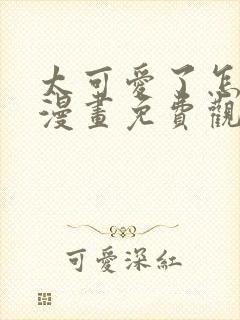 太可愛了怎
漫畫免費觀
可愛深紅